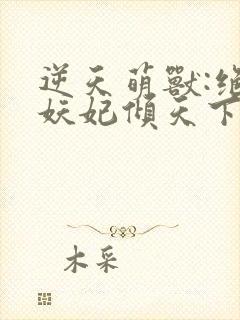 逆天萌獸:絕
妖妃傾天下
木采